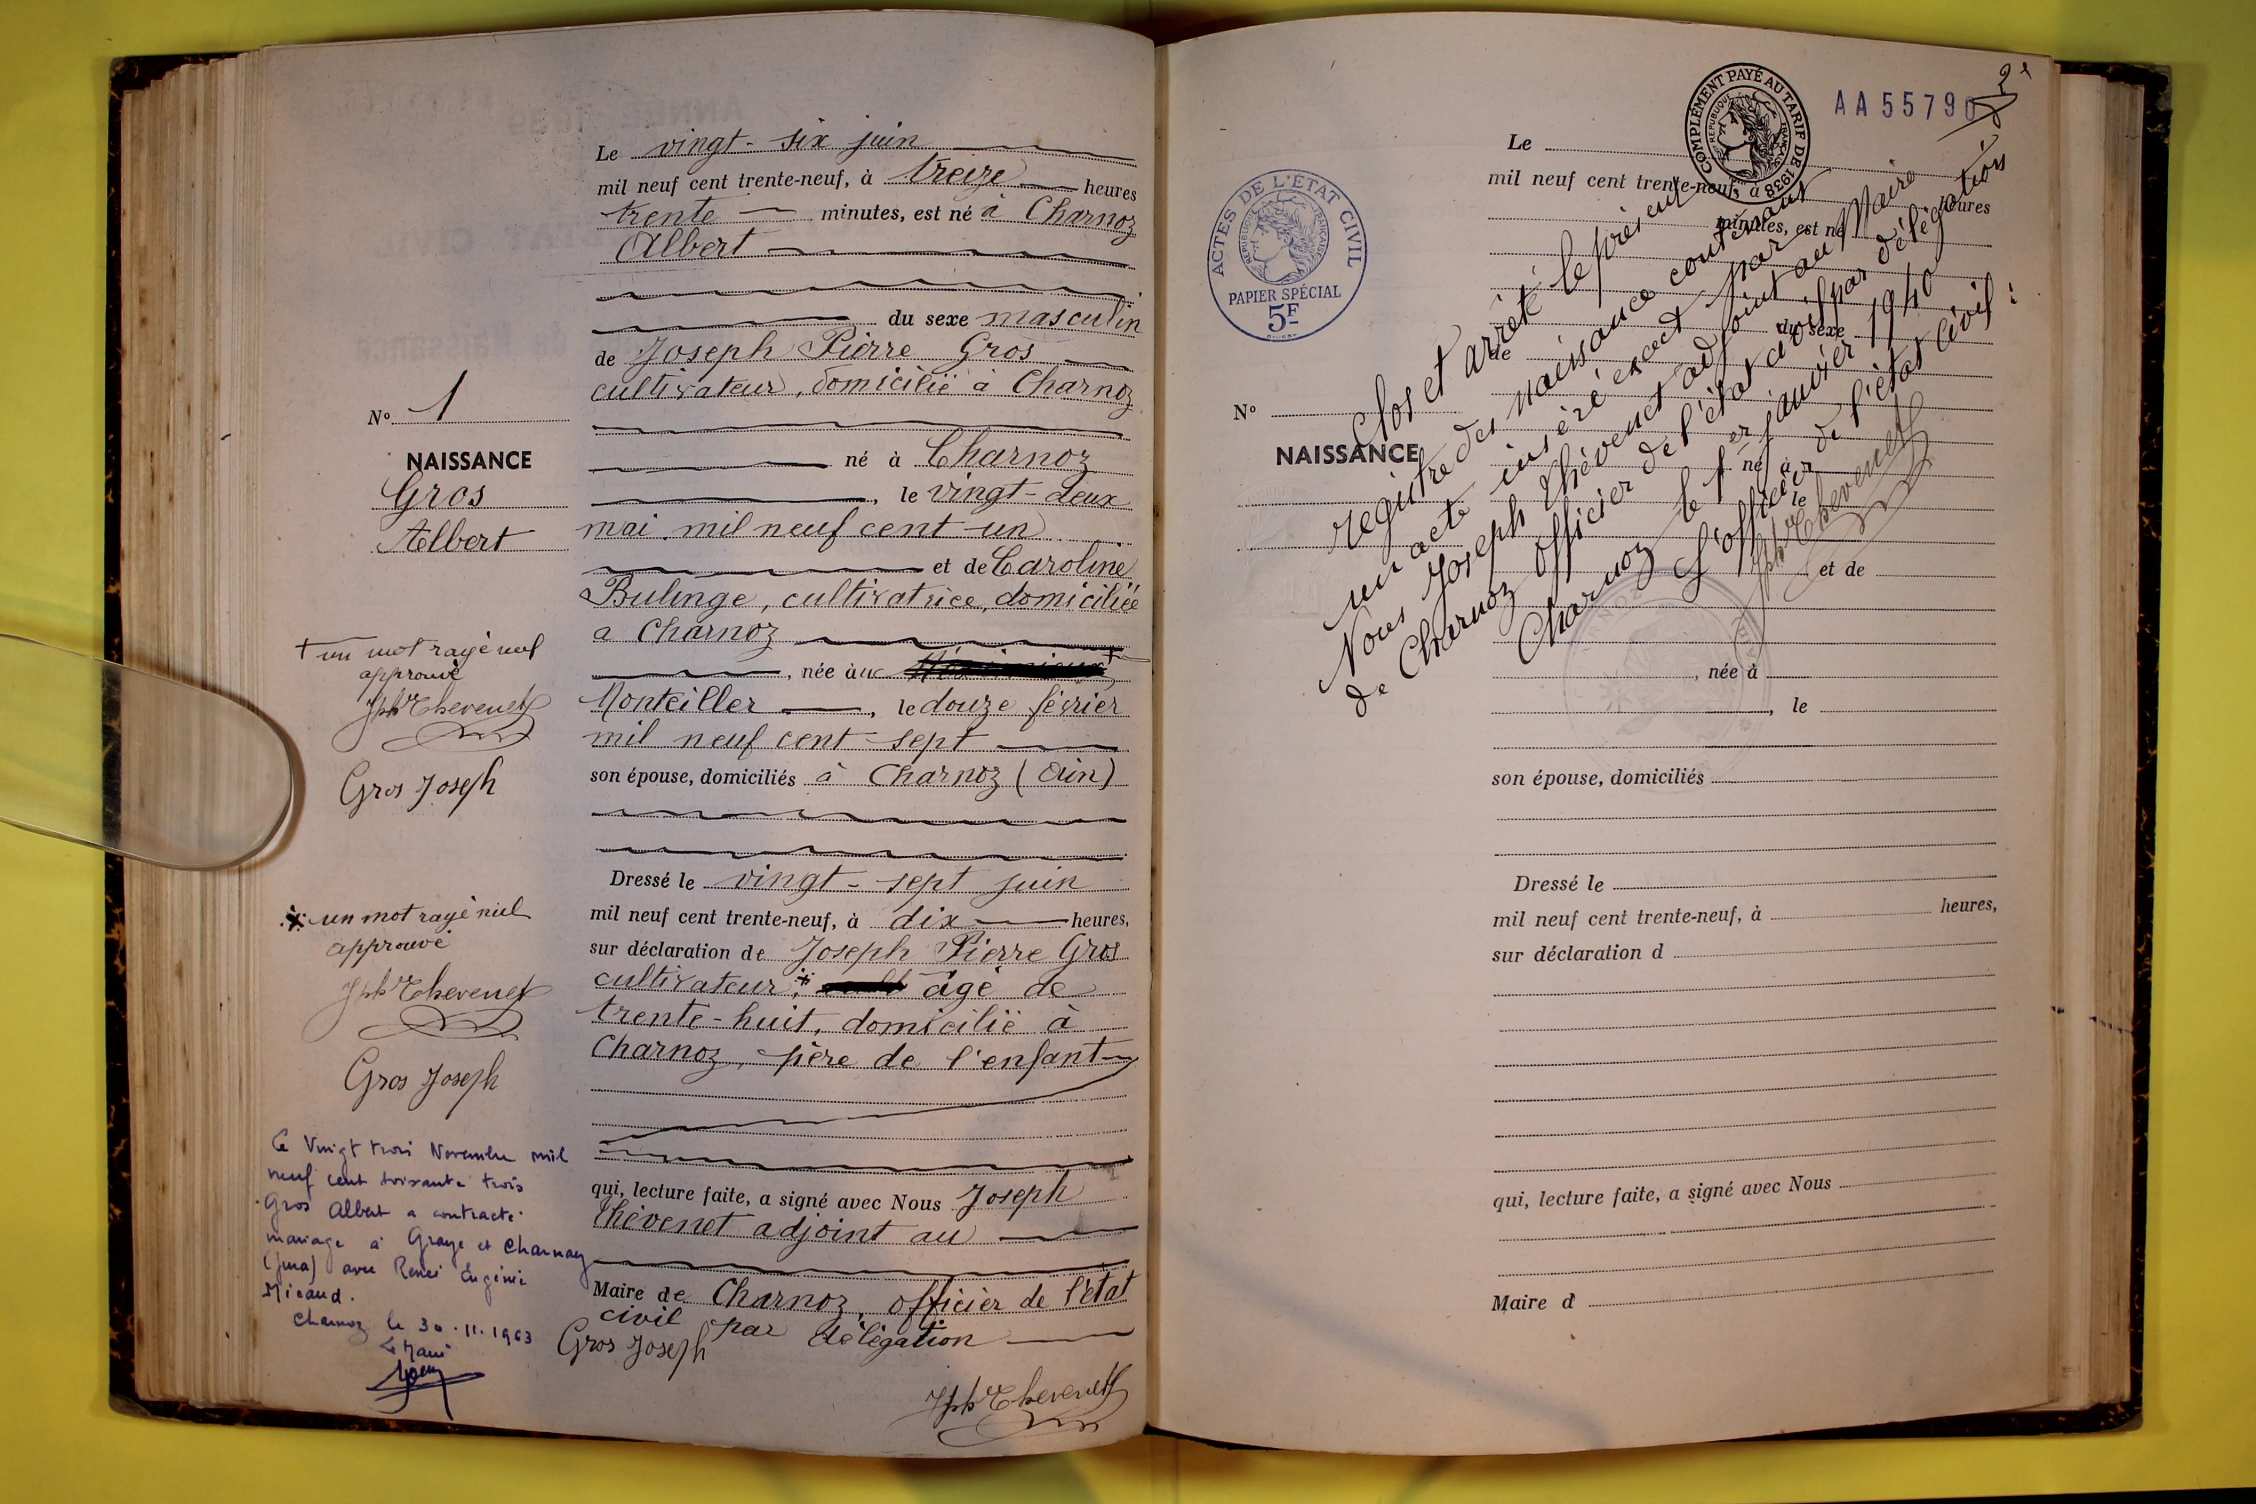 Le vingt-six juin
mil neuf cent trente-neuf, à treize heures
trente minutes, est né à Charnoz
Albert
du sexe masculin
de Joseph Pierre Gros
cultivateur, domicilié à Charnoz
né à Charnoz
, le vingt-deux
mai mil neuf cent un
et de Caroline
Bulinge, cultivatrice, domiciliée
a Charnoz
, née à
Montellier , le douze février
mil neuf cent sept
son épouse, domiciliés à Charnoz (Ain)
Dressé le vingt-sept juin
mil neuf cent trente-neuf, à dix heures,
sur déclaration de Joseph Pierre Gros
cultivateur, * âgé de
trente-huit, domicilié à
Charnoz, père de l'enfant
qui, lecture faite, a signé avec Nous Joseph
Thévenet adjoint au
Maire de Charnoz, officier de l'état
civil par délégation
Gros Joseph
Jph Thevenet
N° 1
NAISSANCE
Gros
Albert
+ un mot rayé nul
approuvé
Jph Thevenet
Gros Joseph
* un mot rayé nul
approuvé
Jph Thevenet
Gros Joseph
Le Vingt trois Novembre mil
neuf cent soixante trois
Gros Albert a contracté
mariage à Graye et Charnay
(Jura) avec Renée Eugénie
Micaud.
Charnoz le 30.11.1963
Le Maire
COMPLÉMENT PAYÉ AU TARIF DE 1938
RÉPUBLIQUE FRANÇAISE
AA55790
2
ACTES DE L'ÉTAT CIVIL
RÉPUBLIQUE FRANÇAISE
PAPIER SPÉCIAL
5F
Clos et arrêté le présent
registre des naissance contenant
un acte inséré exact par
Nous Joseph Thévenet adjoint au Maire
de Charnoz officier de l'état civil par délégation
Charnoz le 1er janvier 1940
L'officier de l'état civil :
Jph Thevenet
Le
mil neuf cent trente-neuf, à heures
minutes, est né
du sexe
de
N°
NAISSANCE
né à
, le
et de
, née à
, le
son épouse, domiciliés
Dressé le
mil neuf cent trente-neuf, à heures,
sur déclaration d
qui, lecture faite, a signé avec Nous
Maire d